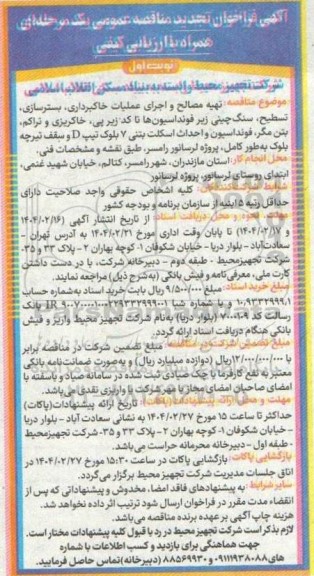 آگهی فراخوان تجدید مناقصه عمومی یک مرحله‌ای
همراه با ارزیابی کیفی
نوبت اول
شرکت تجهیز محیط وابسته به بنیاد مسکن انقلاب اسلامی
موضوع مناقصه: تهیه مصالح و اجرای عملیات خاکبرداری، بسترسازی،
تسطیح، سنگ‌چینی زیر فونداسیون‌ها تا کد زیر پی، خاکریزی و تراکم،
بتن مگر، فونداسیون و احداث اسکلت بتنی ۷ بلوک تیپ D و سقف تیرچه
بلوک به‌طور کامل، پروژه لرسانور رامسر، طبق نقشه و مشخصات فنی.
محل انجام کار: استان مازندران، شهر رامسر، کتالم، خیابان شهید غنمی،
ابتدای روستای لرسانور، پروژه لرسانور
شرایط شرکت‌کنندگان: کلیه اشخاص حقوقی واجد صلاحیت دارای
حداقل رتبه ۵ ابنیه از سازمان برنامه و بودجه کشور
مهلت، نحوه و محل دریافت اسناد: از تاریخ انتشار آگهی (۱۴۰۴/۰۲/۱۶
و ۱۴۰۴/۰۲/۱۷) تا پایان وقت اداری مورخ ۱۴۰۴/۰۲/۲۱ به آدرس تهران -
سعادت‌آباد - بلوار دریا - خیابان شکوفان ۱- کوچه بهاران ۲ - پلاک ۳۳ و ۳۵-
شرکت تجهیزمحیط - طبقه دوم - دبیرخانه شرکت، با در دست داشتن
کارت ملی، معرفی‌نامه و فیش بانکی (به‌شرح ذیل) مراجعه نمایند.
مبلغ خرید اسناد: مبلغ ۹/۵۰۰/۰۰۰ ریال بابت خرید اسناد به‌شماره حساب
و با شماره شبا IR بانک
رسالت کد ۷۰۰۱۰۰۹ (بلوار دریا) به‌نام شرکت تجهیز محیط واریز و فیش
بانکی هنگام دریافت اسناد ارائه گردد.
مبلغ تضمین شرکت در مناقصه: مبلغ تضمین شرکت در مناقصه برابر
با ۱۲/۰۰۰/۰۰۰/۰۰۰ ریال (دوازده میلیارد ریال) و به‌صورت ضمانت‌نامه بانکی
معتبر به نفع کارفرما یا چک صیادی ثبت شده در سامانه صیاد و یا سفته با
امضای صاحبان امضای مجاز با مهر شرکت یا واریزی نقدی می‌باشد.
مهلت و محل ارائه پیشنهادات (پاکات): تاریخ ارائه پیشنهادات (پاکات)
حداکثر تا ساعت ۱۵ مورخ ۱۴۰۴/۰۲/۲۷ به نشانی سعادت آباد - بلوار دریا
- خیابان شکوفان ۱- کوچه بهاران ۲ - پلاک ۳۳ و ۳۵- شرکت تجهیزمحیط
- طبقه اول - دبیرخانه محرمانه حراست می‌باشد.
بازگشایی پاکات: بازگشایی پاکات در ساعت ۱۵:۳۰ مورخ ۱۴۰۴/۰۲/۲۷ در
اتاق جلسات مدیریت شرکت تجهیز محیط برگزار می‌گردد.
سایر شرایط: به پیشنهادهای فاقد امضا، مخدوش و پیشنهاداتی که پس از
انقضاء مدت مقرر در فراخوان ارسال شود ترتیب اثر داده نخواهد شد.
هزینه چاپ آگهی بر عهده برنده مناقصه می‌باشد.
لازم بذکر است شرکت تجهیز محیط در رد یا قبول کلیه پیشنهادات مختار است.
جهت هماهنگی برای بازدید و کسب اطلاعات با شماره
های ۰۹۱۱۱۹۳۸۰۸۸ و ۸۸۵۶۹۹۳۰ (دبیرخانه) تماس حاصل فرمایید.